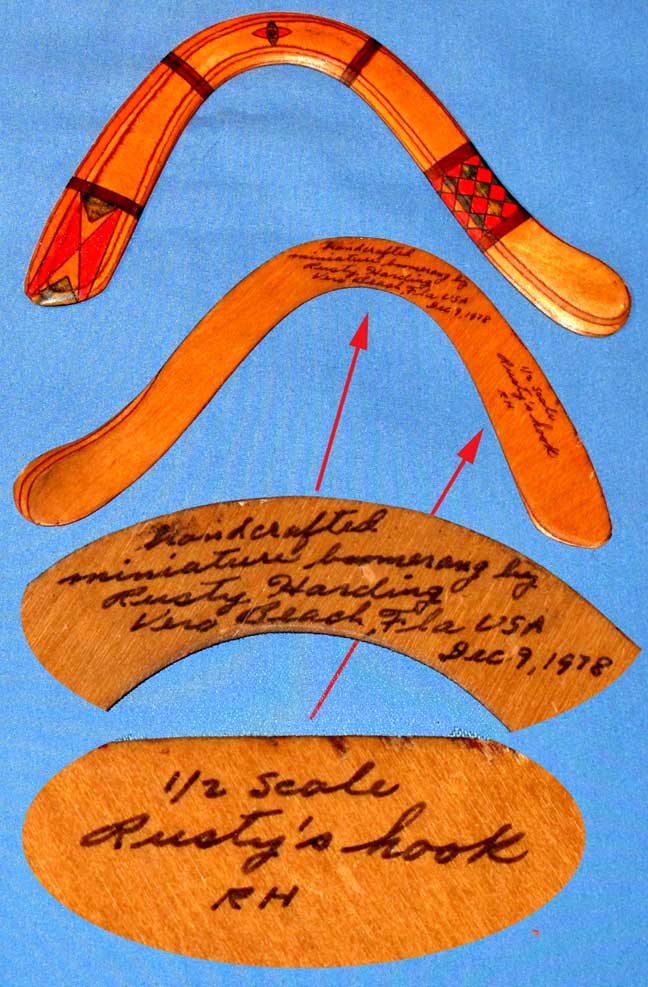 Handcrafted
miniature boomerang by
Rusty Harding
Vero Beach, Fla USA
Dec 9, 1978
1/2 scale
Rusty's hook
RH
Handcrafted
miniature boomerang by
Rusty Harding
Vero Beach, Fla USA
Dec 9, 1978
1/2 scale
Rusty's hook
RH